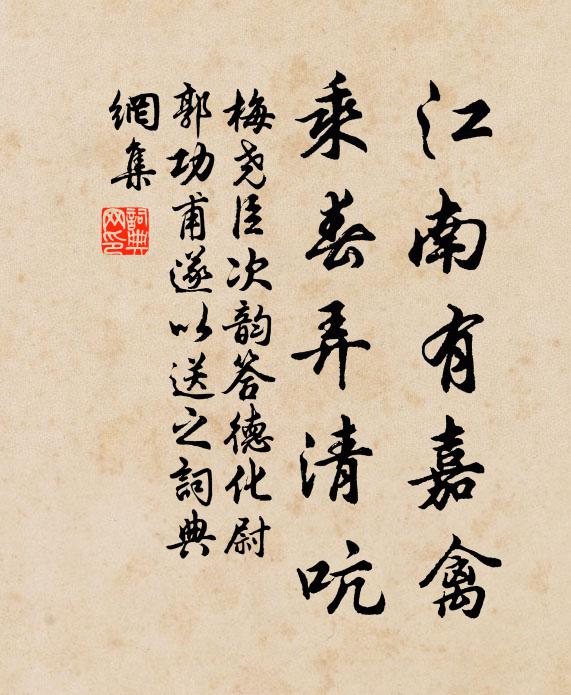 江南有嘉禽
乘春弄清吭
梅堯臣次韵答德化尉
郭功甫遂以送之詞典
網集
詞典网印